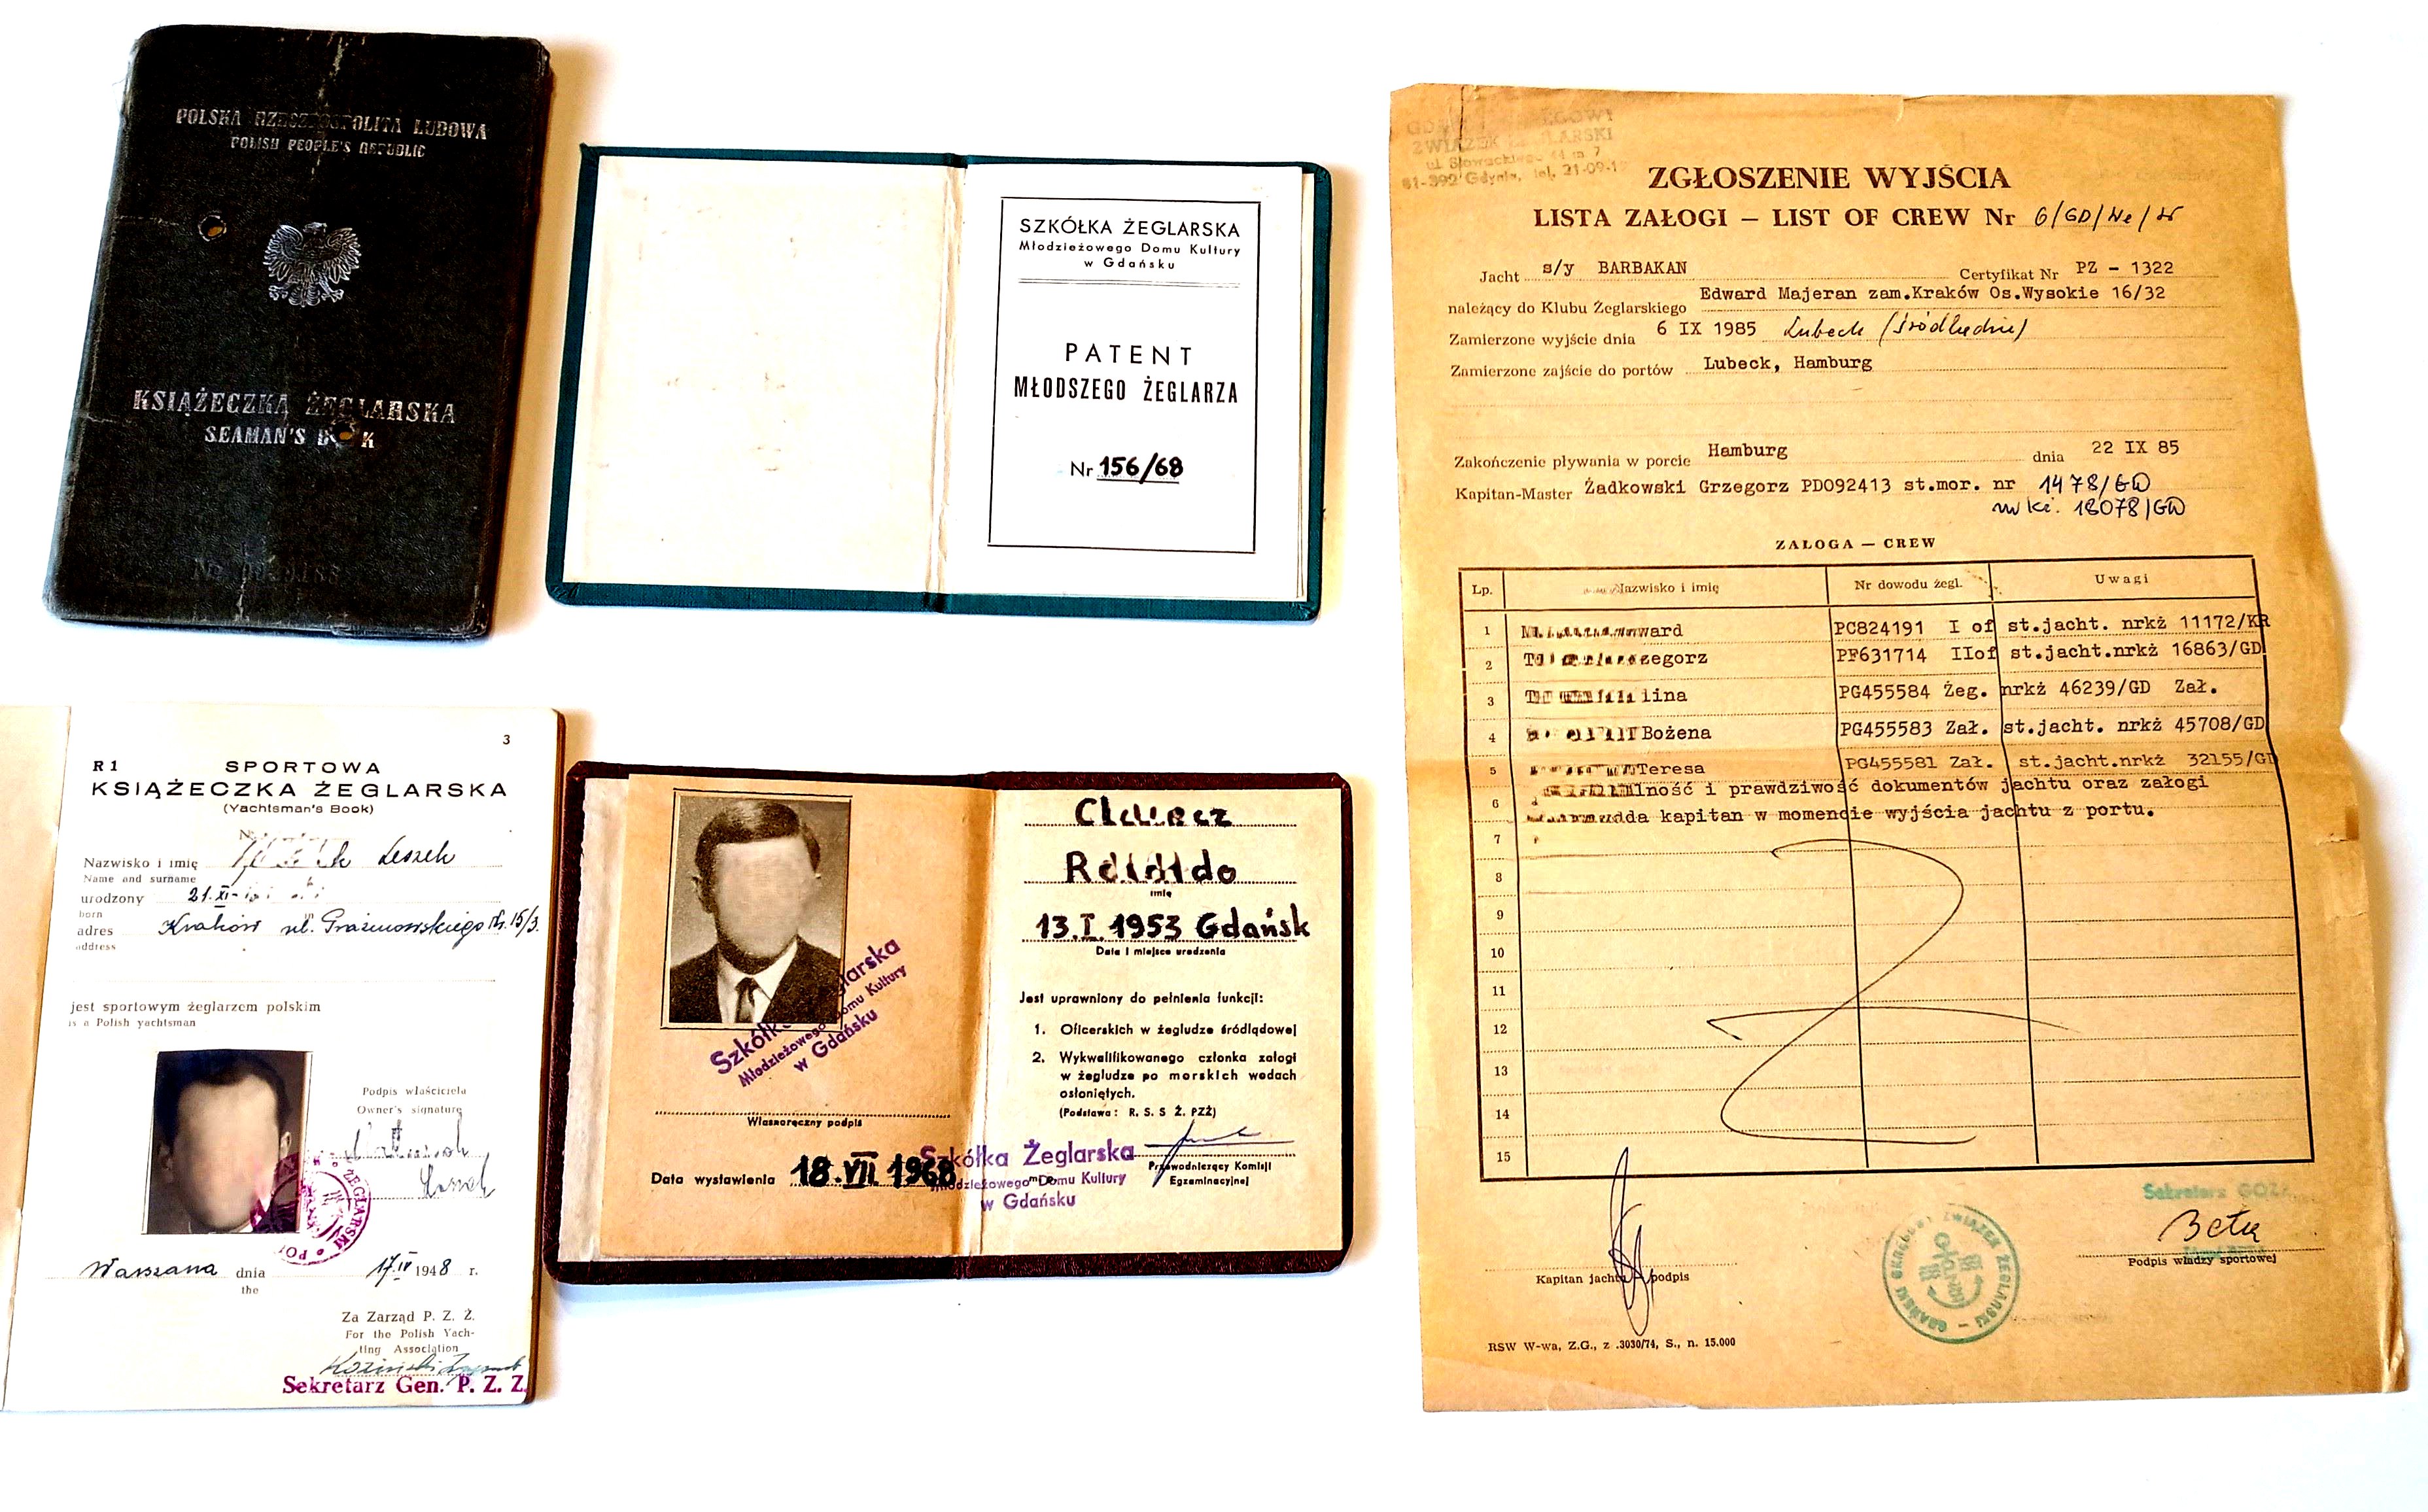 POLSKA RZECZPOSPOLITA LUDOWA
POLISH PEOPLE'S REPUBLIC
KSIĄŻECZKA ŻEGLARSKA
SEAMAN'S B K
SZKÓŁKA ŻEGLARSKA
Młodzieżowego Domu Kultury
w Gdańsku
PATENT
MŁODSZEGO ŻEGLARZA
Nr 156/68
3
R 1 SPORTOWA
KSIĄŻECZKA ŻEGLARSKA
(Yachtsman's Book)
Nazwisko i imię Leszek
Name and surname
urodzony 21.XI
born in
adres Kraków ul.
address
jest sportowym żeglarzem polskim
is a Polish yachtsman
Podpis właściciela
Owner's signature
Warszawa dnia 17.IV 1948 r.
the
Za Zarząd P. Z. Ż.
For the Polish Yach-
ting Association
Sekretarz Gen. P. Z. Ż.
Szkółka Żeglarska
Młodzieżowego Domu Kultury
w Gdańsku
Własnoręczny podpis
Data wystawienia 18.VII.1968
imię
13.I.1953 Gdańsk
Data i miejsce urodzenia
Jest uprawniony do pełnienia funkcji:
1. Oficerskich w żegludze śródlądowej
2. Wykwalifikowanego członka załogi
w żegludze po morskich wodach
osłoniętych.
(Podstawa: R. S. S Ż. PZŻ)
Szkółka Żeglarska
Młodzieżowego Domu Kultury
w Gdańsku
Przewodniczący Komisji
Egzaminacyjnej
ZWIĄZEK ŻEGLARSKI
81-392 Gdynia, tel. 21-09-1
ZGŁOSZENIE WYJŚCIA
LISTA ZAŁOGI – LIST OF CREW Nr 6/GD/
Jacht s/y BARBAKAN Certyfikat Nr PZ - 1322
należący do Klubu Żeglarskiego Edward Majeran zam.Kraków Os.Wysokie 16/32
Zamierzone wyjście dnia 6 IX 1985 Lubeck
Zamierzone zajście do portów Lubeck, Hamburg
Zakończenie pływania w porcie Hamburg dnia 22 IX 85
Kapitan-Master Żadkowski Grzegorz PD092413 st.mor. nr 1478/GD
18078/GD
ZAŁOGA — CREW
Lp. Nazwisko i imię Nr dowodu żegl. Uwagi
1 ward PC824191 I of st.jacht. nrkż 11172/KR
2 egorz PF631714 IIof st.jacht.nrkż 16863/GD
3 lina PG455584 Żeg. nrkż 46239/GD Zał.
4 Bożena PG455583 Zał. st.jacht. nrkż 45708/GD
5 Teresa PG455581 Zał. st.jacht.nrkż 32155/GD
6 lność i prawdziwość dokumentów jachtu oraz załogi
da kapitan w momencie wyjścia jachtu z portu.
7
8
9
10
11
12
13
14
15
Kapitan jachtu – podpis
GDAŃSKI OKRĘGOWY ZWIĄZEK ŻEGLARSKI
Sekretarz GOZŻ
Podpis władzy sportowej
RSW W-wa, Z.G., z .3030/74, S., n. 15.000